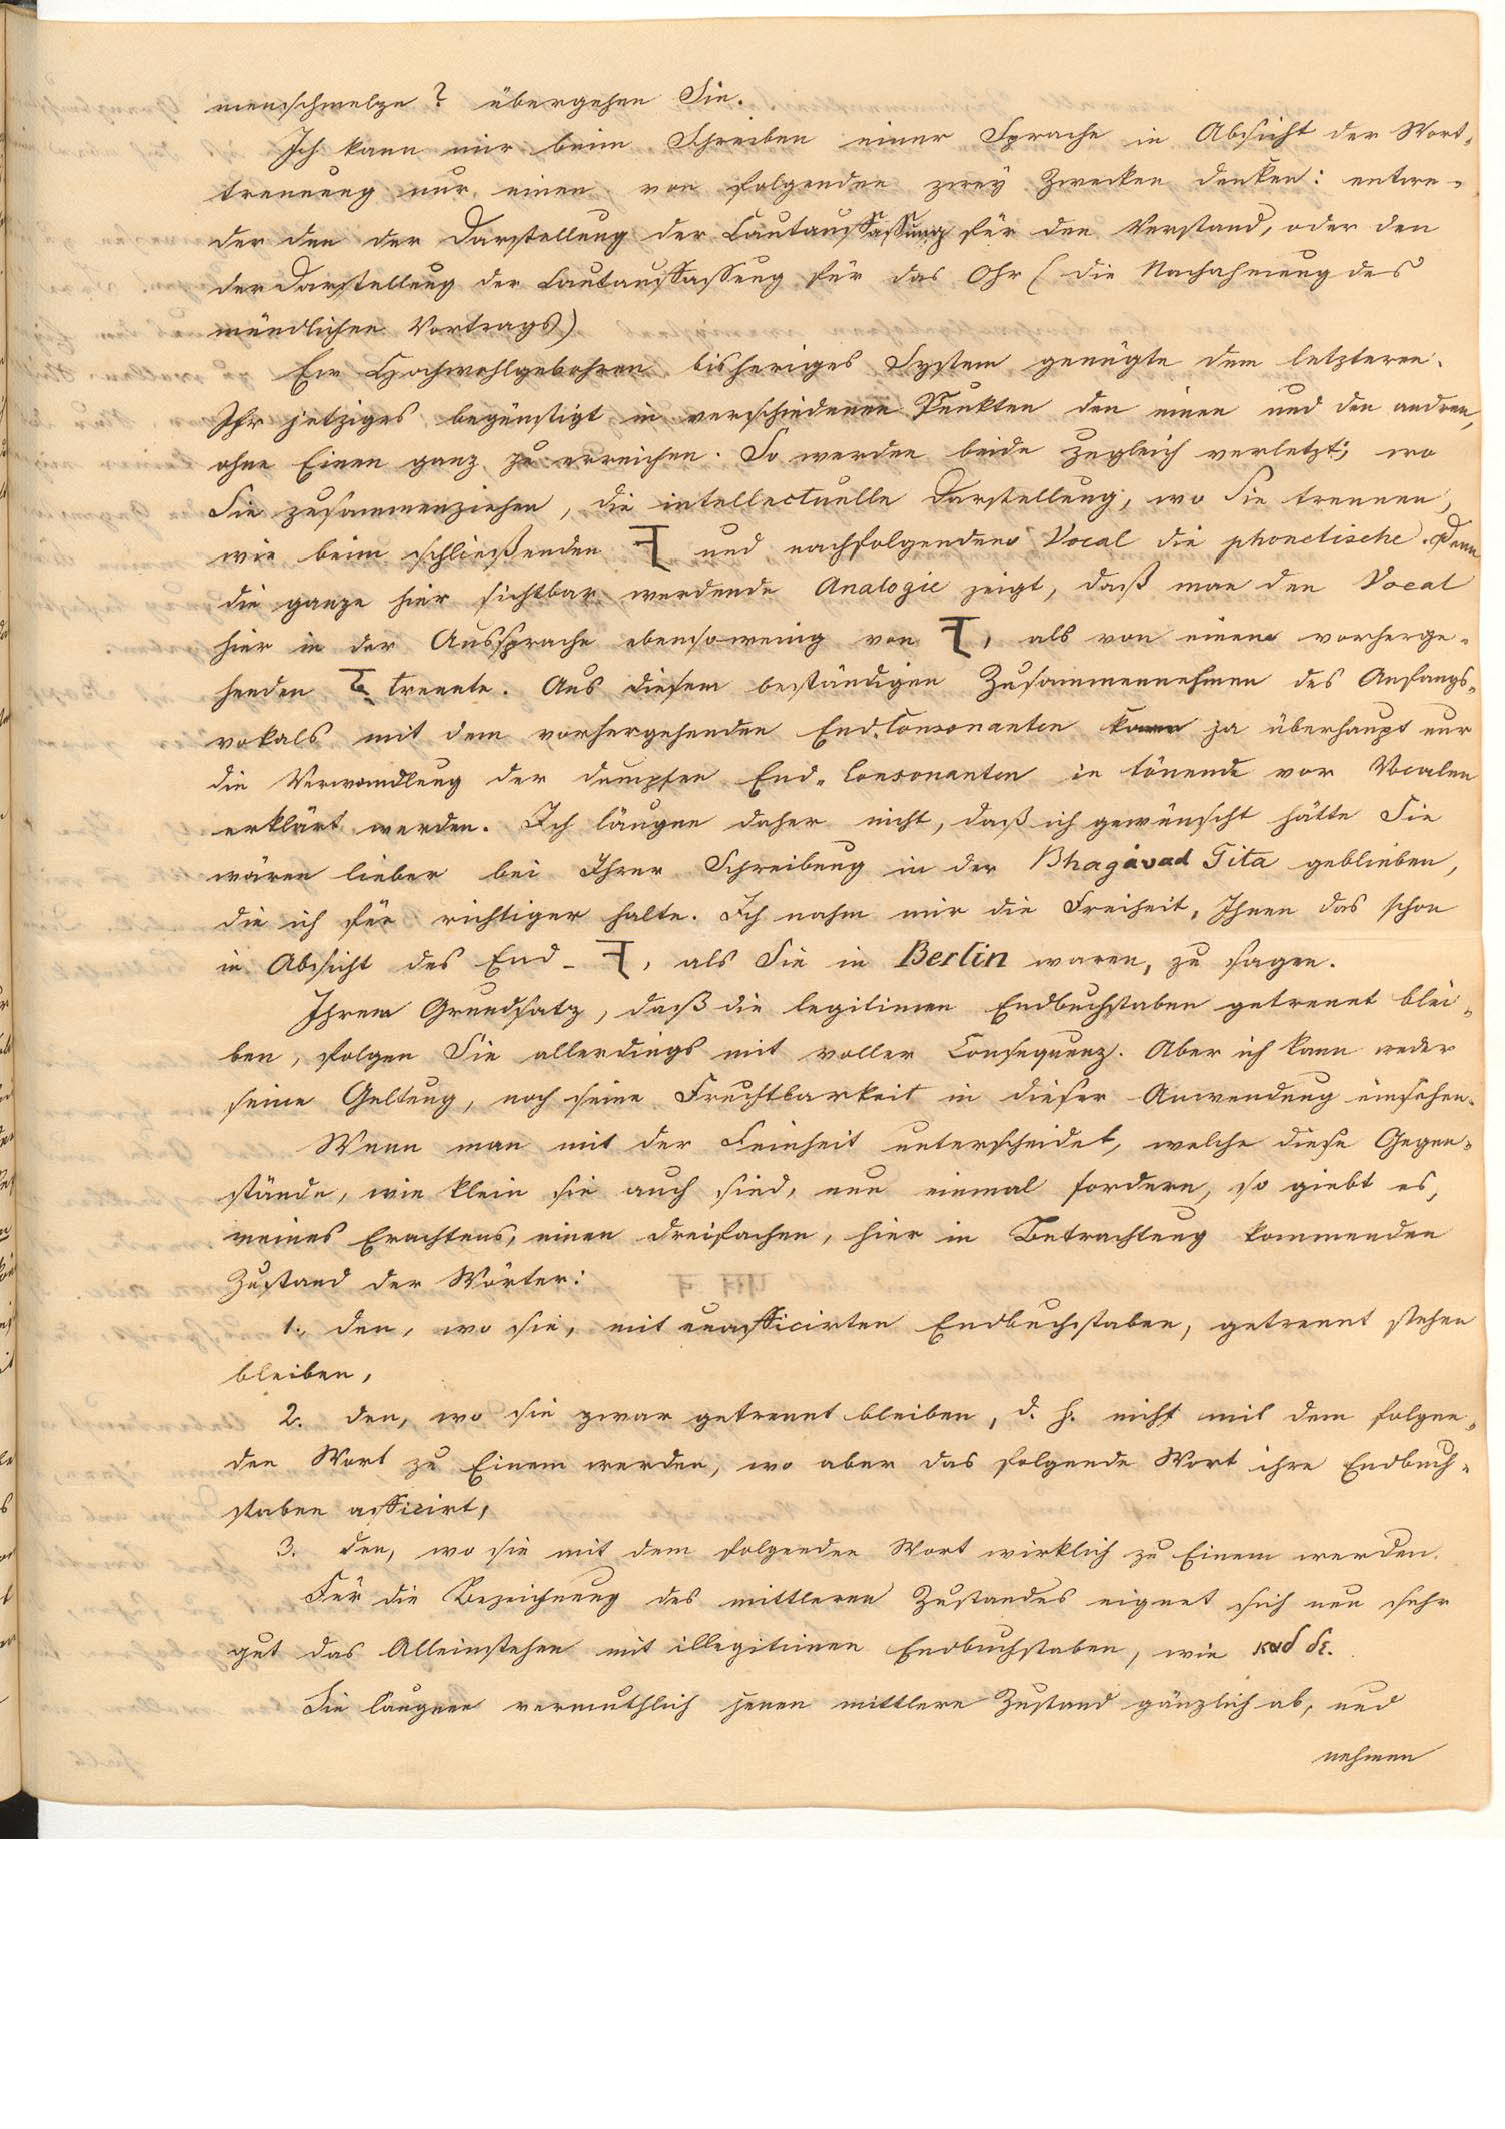 menschmelze? übergehen Sie.
Ich kann mir beim Schreiben einer Sprache in Absicht der Wort-
trennung nur einen von folgenden zwey Zwecken denken: entwe-
der den der Darstellung der Lautauffassung für den Verstand, oder den
der Darstellung der Lautauffassung für das Ohr (die Nachahmung des
mündlichen Vortrags)
Ew Hochwohlgebohren bisheriges System genügte dem letzteren.
Ihr jetziges begünstigt in verschiedenen Punkten den einen und den andren,
ohne Einen ganz zu erreichen. So werden beide zugleich verletzt; wo
Sie zusammenziehen, die intellectuelle Darstellung, wo Sie trennen,
wie beim schließenden न् und nachfolgendem Vocal die phonetische. Denn
die ganze hier sichtbar werdende Analogie zeigt, daß man den Vocal
hier in der Aussprache ebensowenig von न्, als von einem vorherge-
henden द् trennte. Aus diesem beständigen Zusammennehmen des Anfangs-
vokals mit dem vorhergehenden End-Consonanten kann ja überhaupt nur
die Verwandlung der dumpfen End-Consonanten in tönende vor Vocalen
erklärt werden. Ich läugne daher nicht, daß ich gewünscht hätte Sie
wären lieber bei Ihrer Schreibung in der Bhagavad Gita geblieben,
die ich für richtiger halte. Ich nahm mir die Freiheit, Ihnen das schon
in Absicht des End- न्, als Sie in Berlin waren, zu sagen.
Ihrem Grundsatz, daß die legitimen Endbuchstaben getrennt blei-
ben, folgen Sie allerdings mit voller Consequenz. Aber ich kann weder
seine Geltung, noch seine Fruchtbarkeit in dieser Anwendung einsehen.
Wenn man mit der Feinheit unterscheidet, welche diese Gegen-
stände, wie klein sie auch sind, nun einmal fordern, so giebt es,
meines Erachtens, einen dreifachen, hier in Betrachtung kommenden
Zustand der Wörter:
1., den, wo sie, mit unafficirten Endbuchstaben, getrennt stehen
bleiben,
2. den, wo sie zwar getrennt bleiben, d. h. nicht mit dem folgen-
den Wort zu Einem werden, wo aber das folgende Wort ihre Endbuch-
staben afficirt,
3. den, wo sie mit dem folgenden Wort wirklich zu Einem werden.
Für die Bezeichnung des mittleren Zustandes eignet sich nun sehr
gut das Alleinstehen mit illegitimen Endbuchstaben, wie καδ δε.
Sie läugnen vermuthlich jenen mittlern Zustand gänzlich ab, und
nehmen